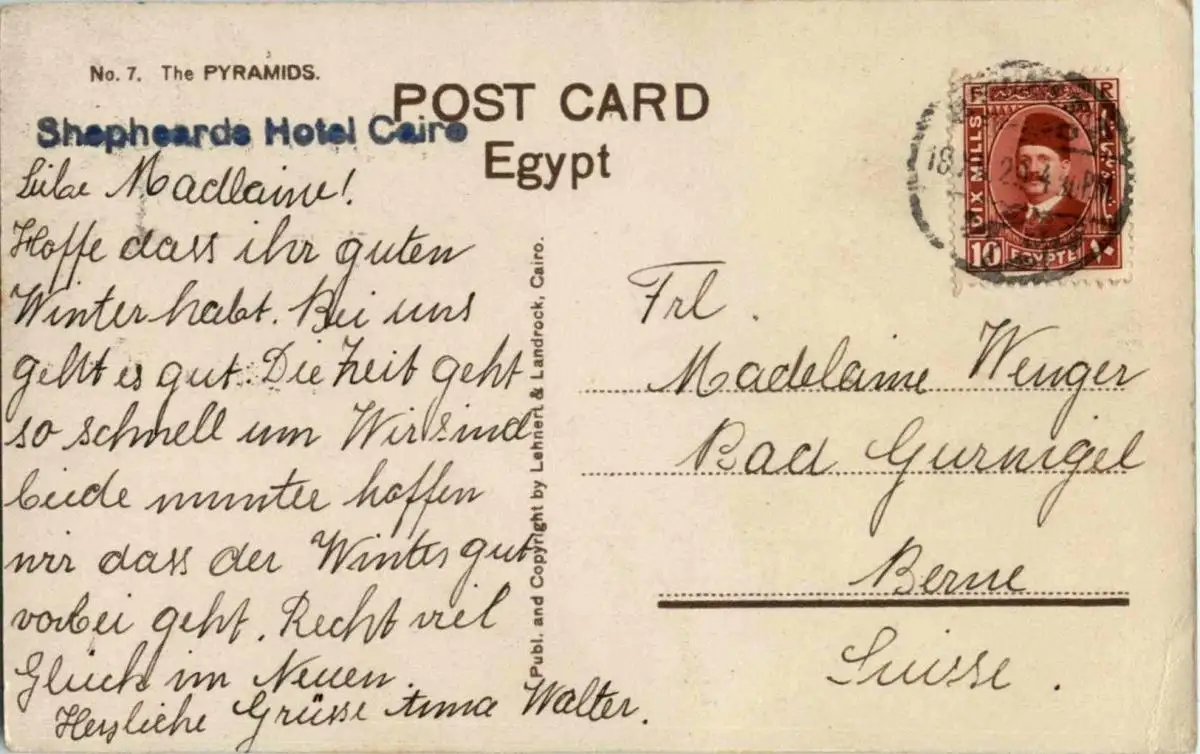 No. 7. The PYRAMIDS.
POST CARD
Egypt
Shepheards Hotel Cairo
Liebe Madlaine!
Hoffe dass ihr guten
Winter habt. Bei uns
geht es gut. Die Zeit geht
so schnell um Wir sind
beide munter hoffen
wir dass der Winter gut
vorbei geht. Recht viel
Glück im Neuen.
Herzliche Grüsse Anna Walter.
Publ. and Copyright by Lehnert & Landrock, Cairo.
SIX MILLS
10 EGYPTE ١٠
PM
Frl.
Madelaine Wenger
Bad Gurnigel
Berne
Suisse.